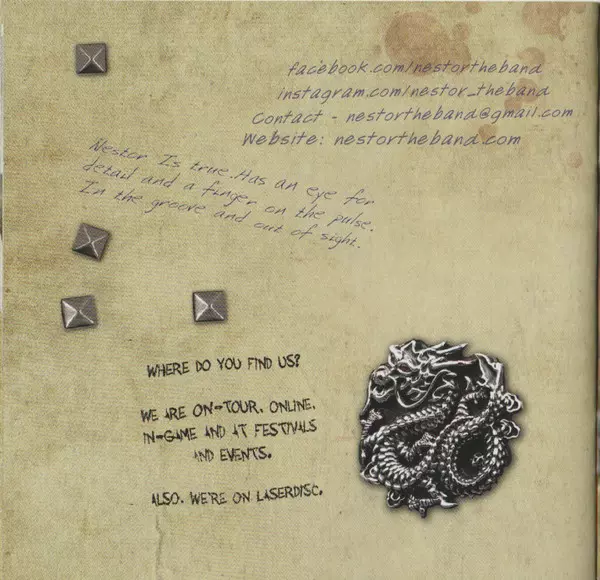 facebook.com/nestortheband
instagram.com/nestor_theband
Contact - nestortheband@gmail.com
Website: nestortheband.com
Nestor Is true. Has an eye for
detail and a finger on the pulse.
In the groove and out of sight.
WHERE DO YOU FIND US?
WE ARE ON-TOUR, ONLINE,
IN-GAME AND AT FESTIVALS
AND EVENTS.
ALSO, WE'RE ON LASERDISC.